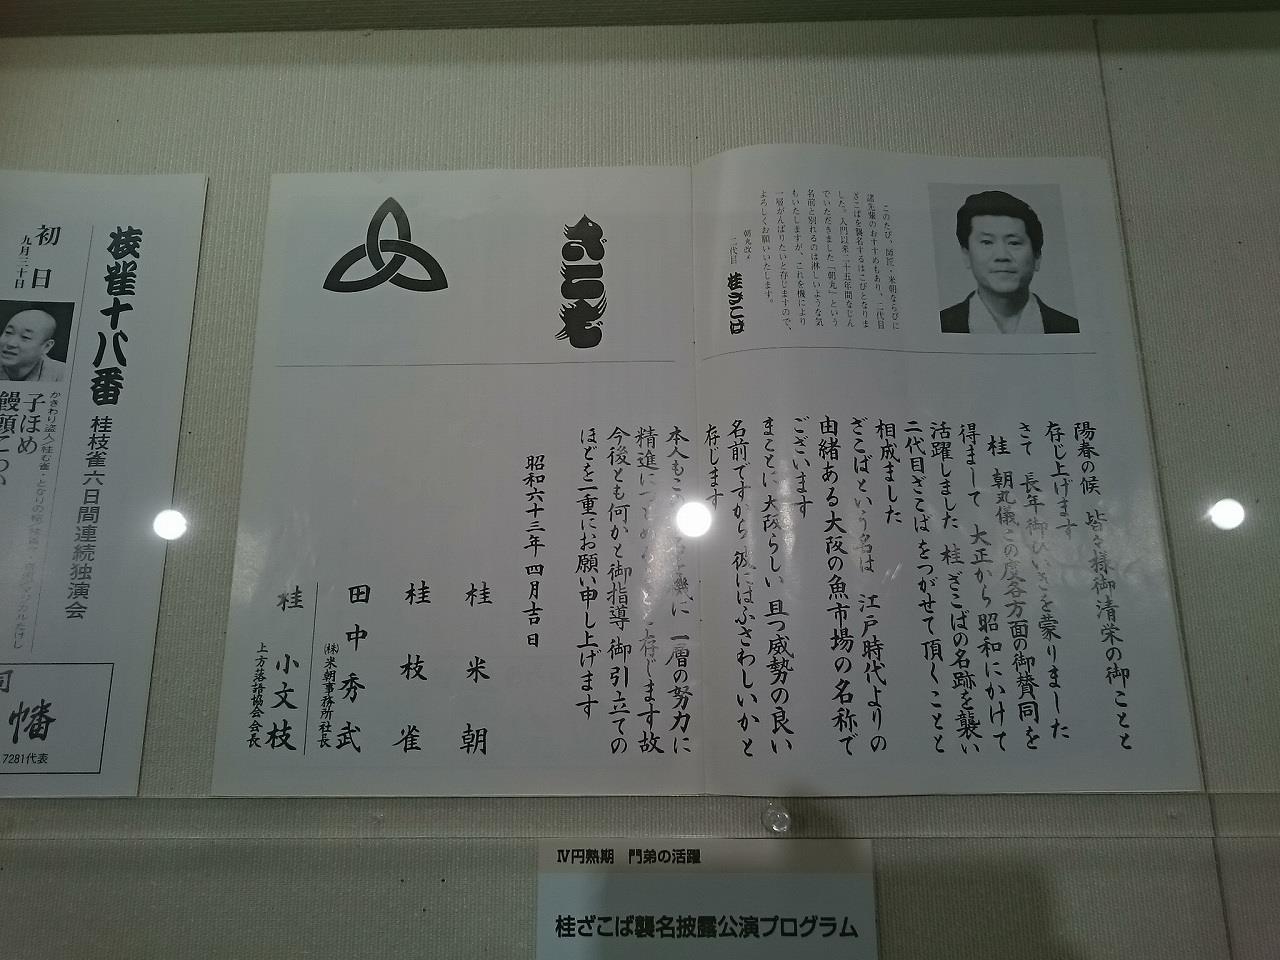 このたび、師匠・米朝ならびに
諸先輩のおすすめもあり、二代目
ざこばを襲名するはこびとなりま
した。入門以来二十五年間なじん
でいただきました「朝丸」という
名前と別れるのは淋しいような気
もいたしますが、これを機により
一層がんばりたいと存じますので、
よろしくお願いいたします。
朝丸改メ
二代目 桂ざこば
ざこば
陽春の候 皆々様御清栄の御ことと
存じ上げます
さて 長年御ひいきを蒙りました
桂 朝丸儀この度各方面の御賛同を
得まして 大正から昭和にかけて
活躍しました 桂ざこばの名跡を襲い
二代目ざこばをつがせて頂くことと
相成ました
ざこばという名は 江戸時代よりの
由緒ある大阪の魚市場の名称で
ございます
まことに大阪らしい且つ威勢の良い
名前ですから 彼にはふさわしいかと
存じます
本人もこ 機に 一層の努力に
精進に 存じます故
今後とも何かと御指導 御引立ての
ほどを一重にお願い申し上げます
昭和六十三年四月吉日
桂 米朝
桂 枝雀
田中秀武
㈱米朝事務所社長
桂 小文枝
上方落語協会会長
枝雀十八番
桂枝雀六日間連続独演会
初日
九月三十日
子ほめ
饅頭こわい
幡
7281代表
Ⅳ円熟期 門弟の活躍
桂ざこば襲名披露公演プログラム